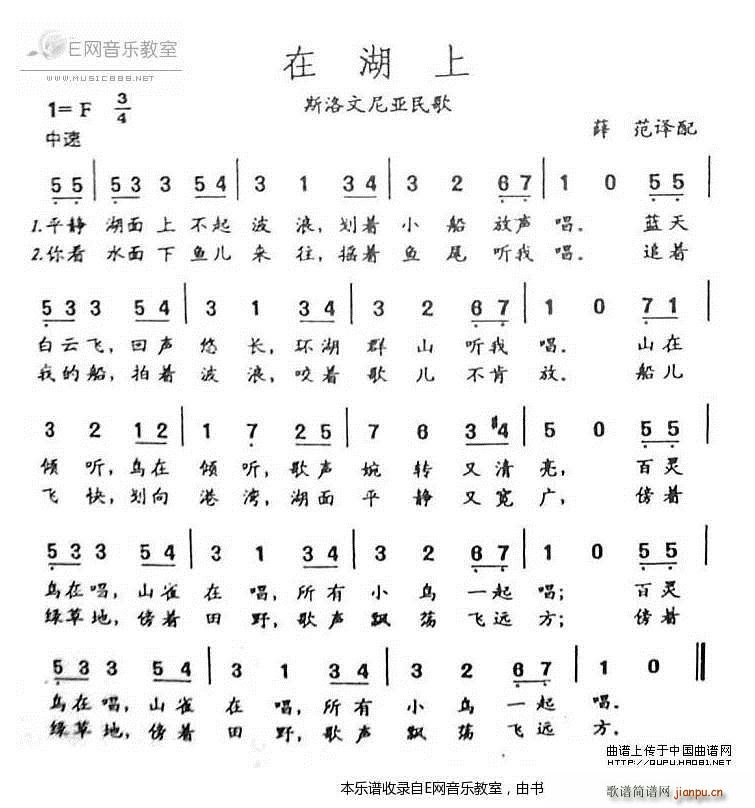 E网音乐教室
www.MUSIC888.NET
在 湖 上
斯洛文尼亚民歌
1= F 3/4
薛 范译配
中速
5 5 | 5 3 3 5 4 | 3 1 3 4 | 3 2 6 7 | 1 0 5 5 |
1.平静 湖面 上 不起 波 浪,划着 小 船 放声 唱. 蓝天
2.你看 水面 下 鱼儿 来 往,摇着 鱼 尾 听我 唱. 追着
5 3 3 5 4 | 3 1 3 4 | 3 2 6 7 | 1 0 7 1 |
白云飞,回声 悠 长,环湖 群 山 听我 唱. 山在
我的船,拍着 波 浪,咬着 歌 儿 不肯 放. 船儿
3 2 1 2 | 1 7 2 5 | 7 6 3 #4 | 5 0 5 5 |
倾 听,鸟在 倾 听,歌声 婉 转 又 清 亮, 百灵
飞 快,划向 港 湾,湖面 平 静 又 宽 广, 傍着
5 3 3 5 4 | 3 1 3 4 | 3 2 6 7 | 1 0 5 5 |
鸟在唱,山雀 在 唱,所有 小 鸟 一起 唱; 百灵
绿草地,傍着 田 野,歌声 飘 荡 飞远 方; 傍着
5 3 3 5 4 | 3 1 3 4 | 3 2 6 7 | 1 0 ‖
鸟在唱,山雀 在 唱,所有 小 鸟 一起 唱.
绿草地,傍着 田 野,歌声 飘 荡 飞远 方.
曲谱上传于中国曲谱网
HTTP://QUPU.HAO81.NET
本乐谱收录自E网音乐教室，由书
歌谱简谱网 jianpu.cn